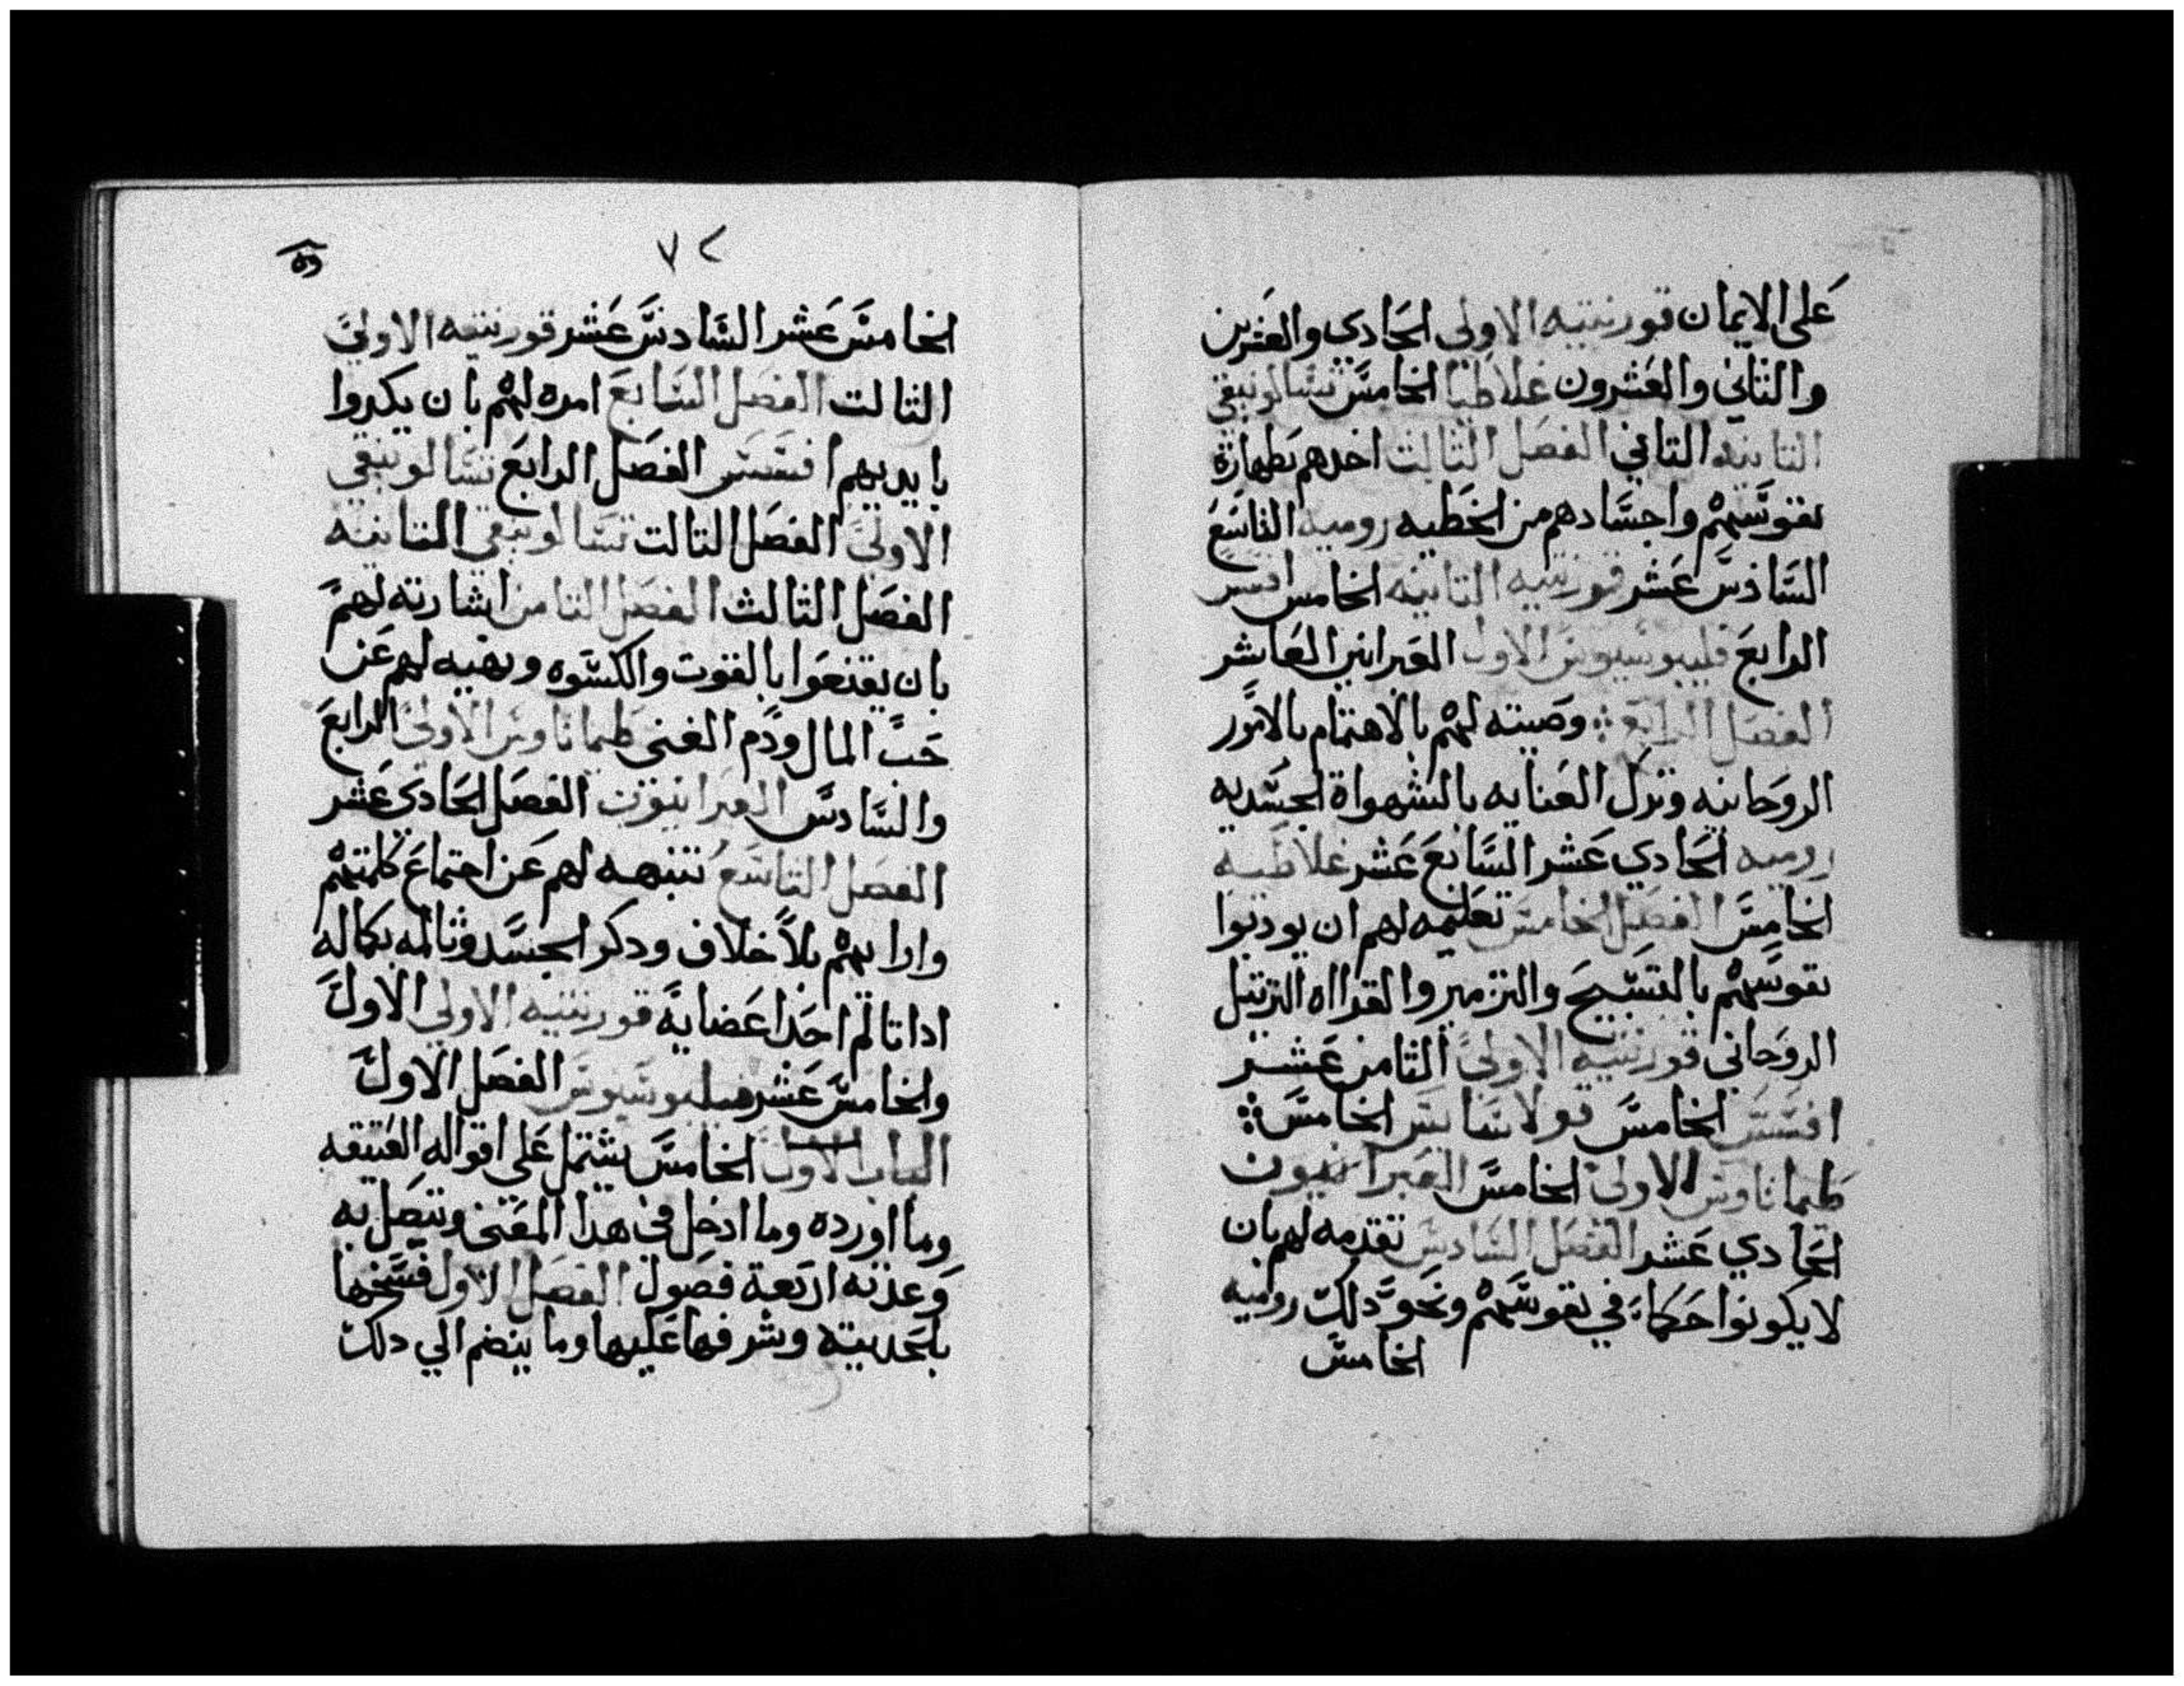 على الايمان قورنتيه الاولى الحادى والعشرين
والتاني والعشرون غلاطيا الخامس تسالونيقي
التانيه التاني الفصل التالت اخدهم بطهارة
نفوسهم واجسادهم من الخطيه روميه التاسع
السادس عشر قورنتيه التانيه الخامس افسس
الرابع فليبوسيوس الاول العبرانين العاشر
الفصل الرابع وصيته لهم بالاهتمام بالامور
الروحانيه وترك العنايه بالشهواة الجسديه
روميه الحادي عشر السابع عشر غلاطيه
الخامس الفصل الخامس تعليمه لهم ان يودبوا
نفوسهم بالتسبيح والتزمير والقرااه الترتيل
الروحاني قورنتيه الاولى الثامن عشر
افسس الخامس قولاسايس الخامس
طيماتاوس الاولى الخامس العبرانيون
الحادي عشر الفصل السادس تقدمه لهم بان
لا يكونوا حكماء في نفوسهم ونحو دلك روميه
الخامس
٧٢
الخامس عشر السادس عشر قورنتيه الاولى
التالت الفصل السابع امره لهم بان يكدوا
بايديهم افسس الفصل الرابع تسالونيقي
الاولى الفصل التالت تسالونيقي التانيه
الفصل الثالث الفصل التامن اشارته لهم
بان يقنعوا بالقوت والكسوه ونهيه لهم عن
حب المال ودم الغنى طيماتاوس الاولى الرابع
والسادس العبرانيون الفصل الحادى عشر
الفصل التاسع تنبهه لهم عن اجتماع كلمتهم
وارايهم بلا خلاف ودكر الجسد وتالمه بكماله
ادا تالم احد اعضايه قورنتيه الاولي الاول
والخامس عشر فيليبوسيوس الفصل الاول
الباب الاول الخامس يشتمل على اقواله العتيقه
وما اورده وما ادخل في هدا المعنى ويتصل به
وعدته اربعة فصول الفصل الاول فسخها
بالحديته وشرفها عليها وما ينضم الي دلك